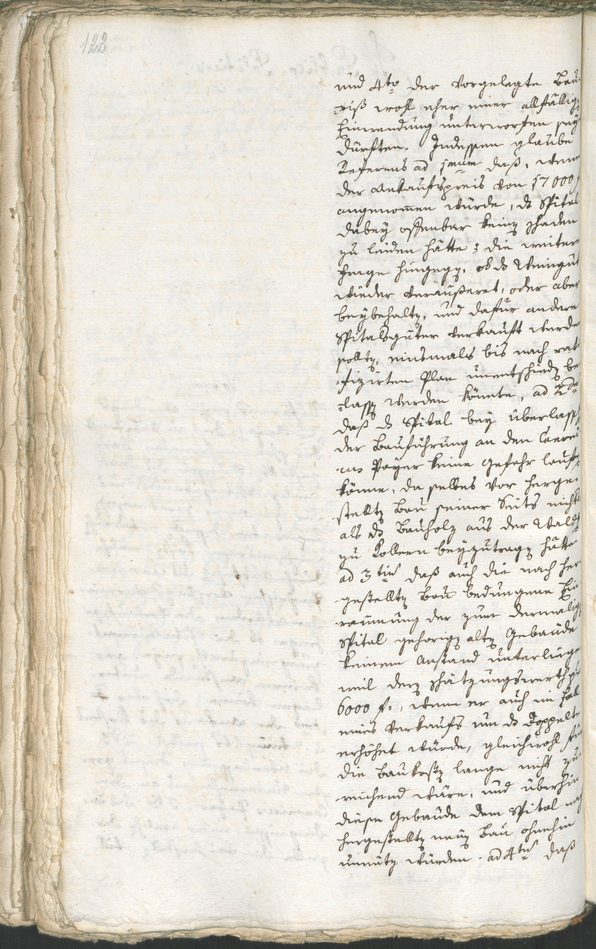 122
und 4to der vorgelegte Bau
riß wohl eher einer allfällig
Einwendung unterworfen seyn
dürften. Indessen glaube
Referens ad 1mum daß, wenn
der Ankaufspreis von 17000 f
angenommen würde, ds Spital
dabey offenbar keinen Schaden
zu leiden hätte; die weitere
Frage hingegen, ob ds Weingut
wieder veräußeret, oder aber
beybehalten, und dafür andere
Spitalsgüter verkauft werden
sollten, einsmals bis nach rat
ifizirten Plan unentschieden be
lassen werden könnte, ad 2dum
daß ds Spital bey überlassung
der Bauführung an den
Payer keine Gefahr laufen
könne, da selbes vor herge
stellten Bau seiner Seits nichts
als ds Bauholz aus der Wald
zu Kollern beyzutragen hätte
ad 3tium daß auch die nach her
gestellten Bau bedungene Ein
raumung der zum dermaligen
Spital gehörigen alten Gebäude
keinem Anstand unterliege
weil deren Schätzungswerth zu
6000 f., wenn er auch im Fall
eines Verkaufs um ds doppelte
erhöhet würde, gleichwohl für
die Baukosten lange nicht zu
reichend wäre, und überhin
diese Gebäude dem Spital nach
hergestellten neuen Bau ohnehin
unnütz würden. ad 4tum daß